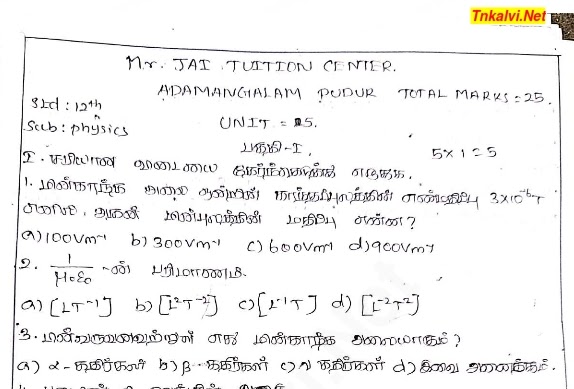 Tnkalvi.Net
Mr. JAI TUITION CENTER.
ADAMANGALAM PUDUR TOTAL MARKS = 25.
Std : 12th
Sub : physics
UNIT = 05.
பகுதி - I.
5 x 1 = 5
I. சரியான விடையை தேர்ந்தெடுத்து எழுதுக.
1. மின்காந்த அலை ஒன்றின் காந்தப்புலத்தின் எண்மதிப்பு 3x10⁻⁶T
எனில், அதன் மின்புலத்தின் மதிப்பு என்ன?
a) 100Vm⁻¹ b) 300Vm⁻¹ c) 600Vm⁻¹ d) 900Vm⁻¹
2. 1/μ₀ε₀ -ன் பரிமாணம்.
a) [LT⁻¹] b) [L²T⁻²] c) [L⁻¹T] d) [L⁻²T²]
3. பின்வருவனவற்றுள் எது மின்காந்த அலையாகும்?
a) α - கதிர்கள் b) β - கதிர்கள் c) γ கதிர்கள் d) இவை அனைத்தும்.